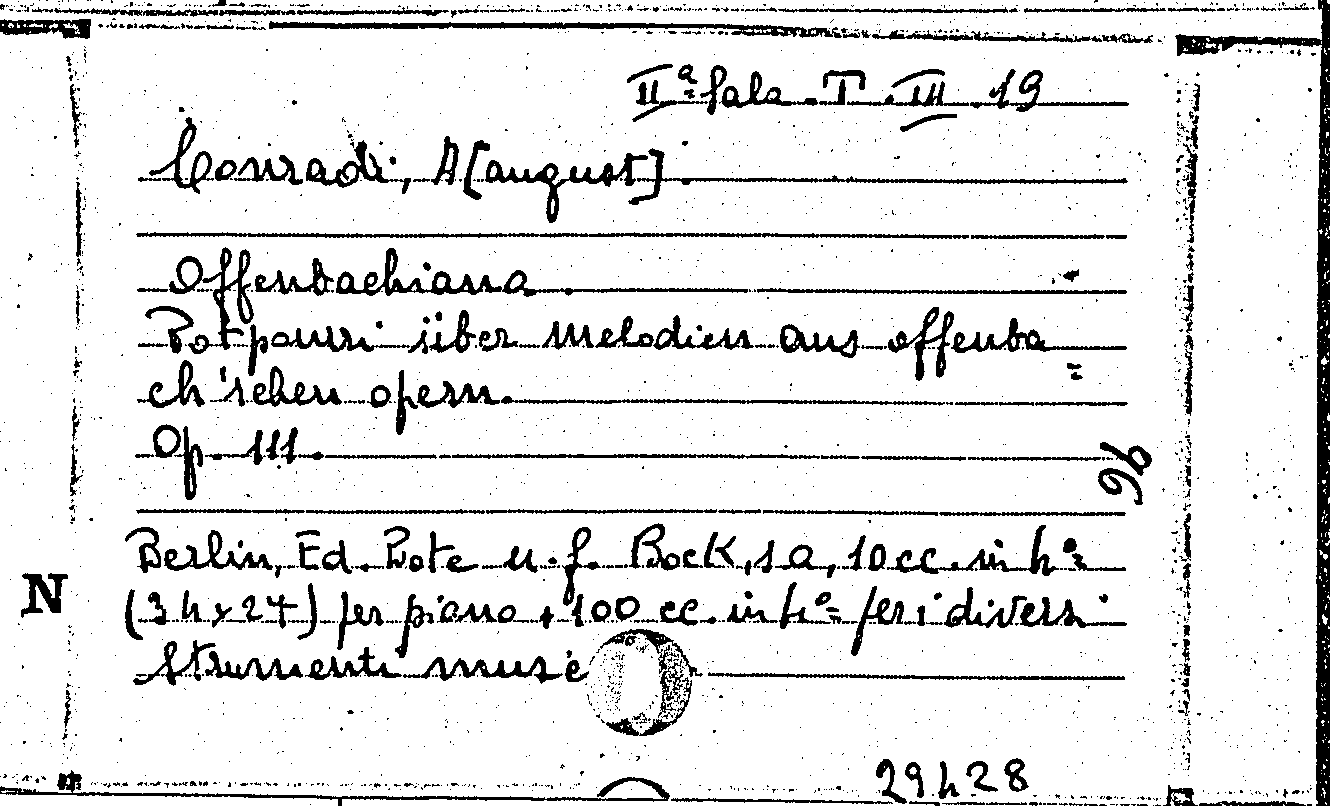 IIª Sala. T. III. 19
Conradi, A[august].
Offenbachiana.
Potpourri über Melodien aus offenba=
ch'schen opern.
Op. 111.
96
Berlin, Ed. Bote u. g. Bock, s a, 10 cc. in fº=
N
(34x27) per piano + 100 cc. in fº= per i diversi
strumenti
29428